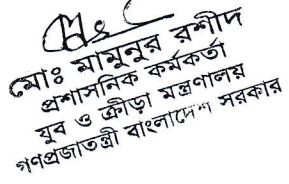 মোঃ মামুনুর রশীদ
প্রশাসনিক কর্মকর্তা
যুব ও ক্রীড়া মন্ত্রণালয়
গণপ্রজাতন্ত্রী বাংলাদেশ সরকার